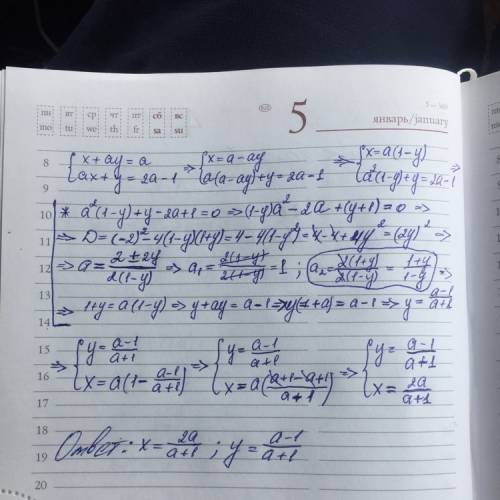 пн вт ср чт пт сб вс
mo tu we th fr sa su
5
январь/january
8 {x+ay=a ⇒ {x=a-ay ⇒ {x=a(1-y) ⇒
9 {ax+y=2a-1 {a(a-ay)+y=2a-1 {a²(1-y)+y=2a-1
10 * a²(1-y)+y-2a+1=0 ⇒ (1-y)a²-2a+(y+1)=0 ⇒
11 ⇒ D=(-2)²-4(1-y)(1+y)=4-4(1-y²)=4-4+4y²=(2y)² ⇒
12 ⇒ a=(2±2y)/(2(1-y)) ⇒ a₁=(2(1-y))/(2(1-y))=1; a₂=(2(1+y))/(2(1-y))=(1+y)/(1-y) ⇒
13 ⇒ 1+y=a(1-y) ⇒ y+ay=a-1 ⇒ y(1+a)=a-1 ⇒ y=(a-1)/(a+1)
14
15 ⇒ {y=(a-1)/(a+1) ⇒ {y=(a-1)/(a+1) ⇒ {y=(a-1)/(a+1)
16 {x=a(1-(a-1)/(a+1)) {x=a((a+1-a+1)/(a+1)) {x=2a/(a+1)
17
18 Ответ: x=2a/(a+1); y=(a-1)/(a+1)
19
20